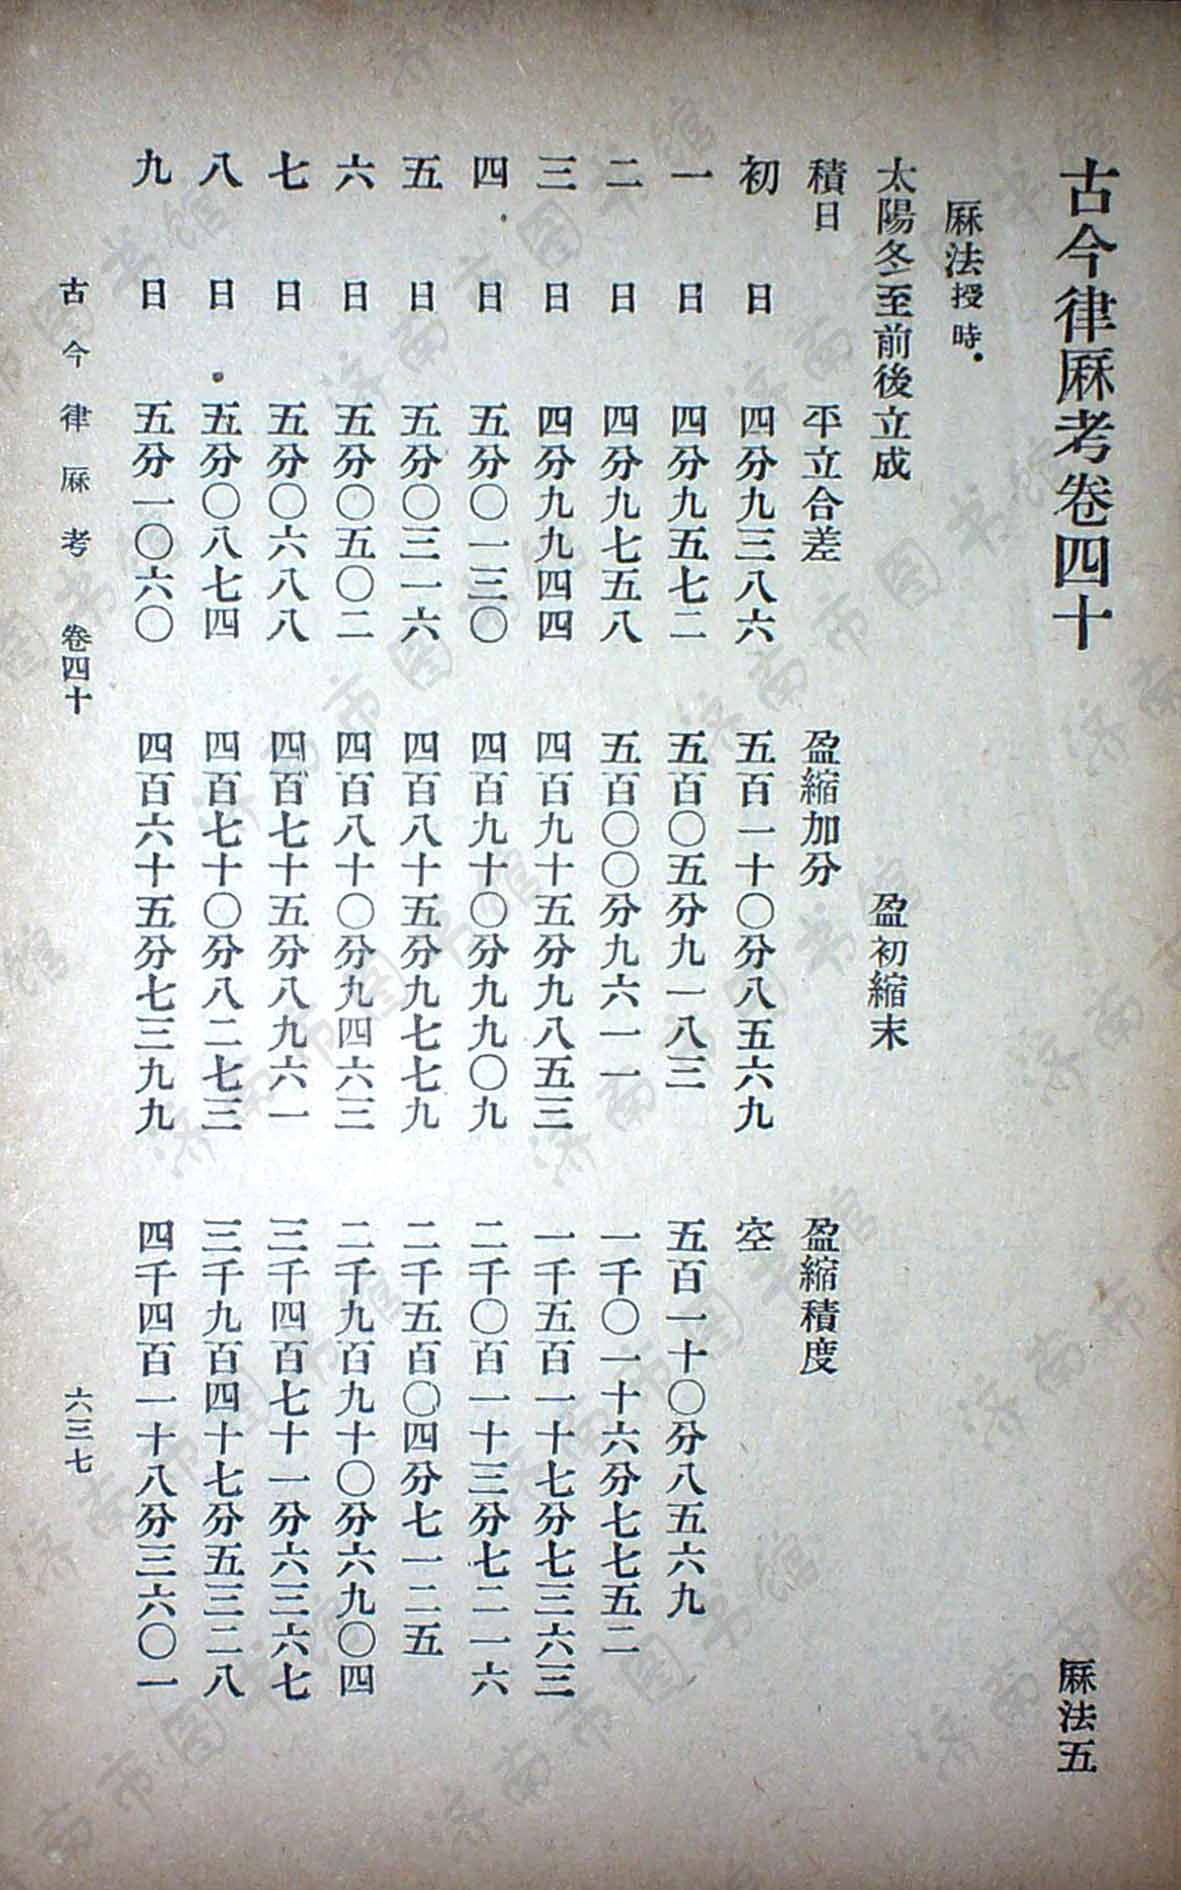 古今律厤考卷四十 厤法五
厤法授時
太陽冬至前後立成 盈初縮末
積日 平立合差 盈縮加分 盈縮積度
初日 四分九三八六 五百一十〇分八五六九 空
一日 四分九五七二 五百〇五分九一八三 五百一十〇分八五六九
二日 四分九七五八 五百〇〇分九六一一 一千〇一十六分七七五二
三日 四分九九四四 四百九十五分九八五三 一千五百一十七分七三六三
四日 五分〇一三〇 四百九十〇分九九〇九 二千〇百一十三分七二一六
五日 五分〇三一六 四百八十五分九七七九 二千五百〇四分七一二五
六日 五分〇五〇二 四百八十〇分九四六三 二千九百九十〇分六九〇四
七日 五分〇六八八 四百七十五分八九六一 三千四百七十一分六三六七
八日 五分〇八七四 四百七十〇分八二七三 三千九百四十七分五三二八
九日 五分一〇六〇 四百六十五分七三九九 四千四百一十八分三六〇一
古今律厤考 卷四十 六三七
济南市图书馆